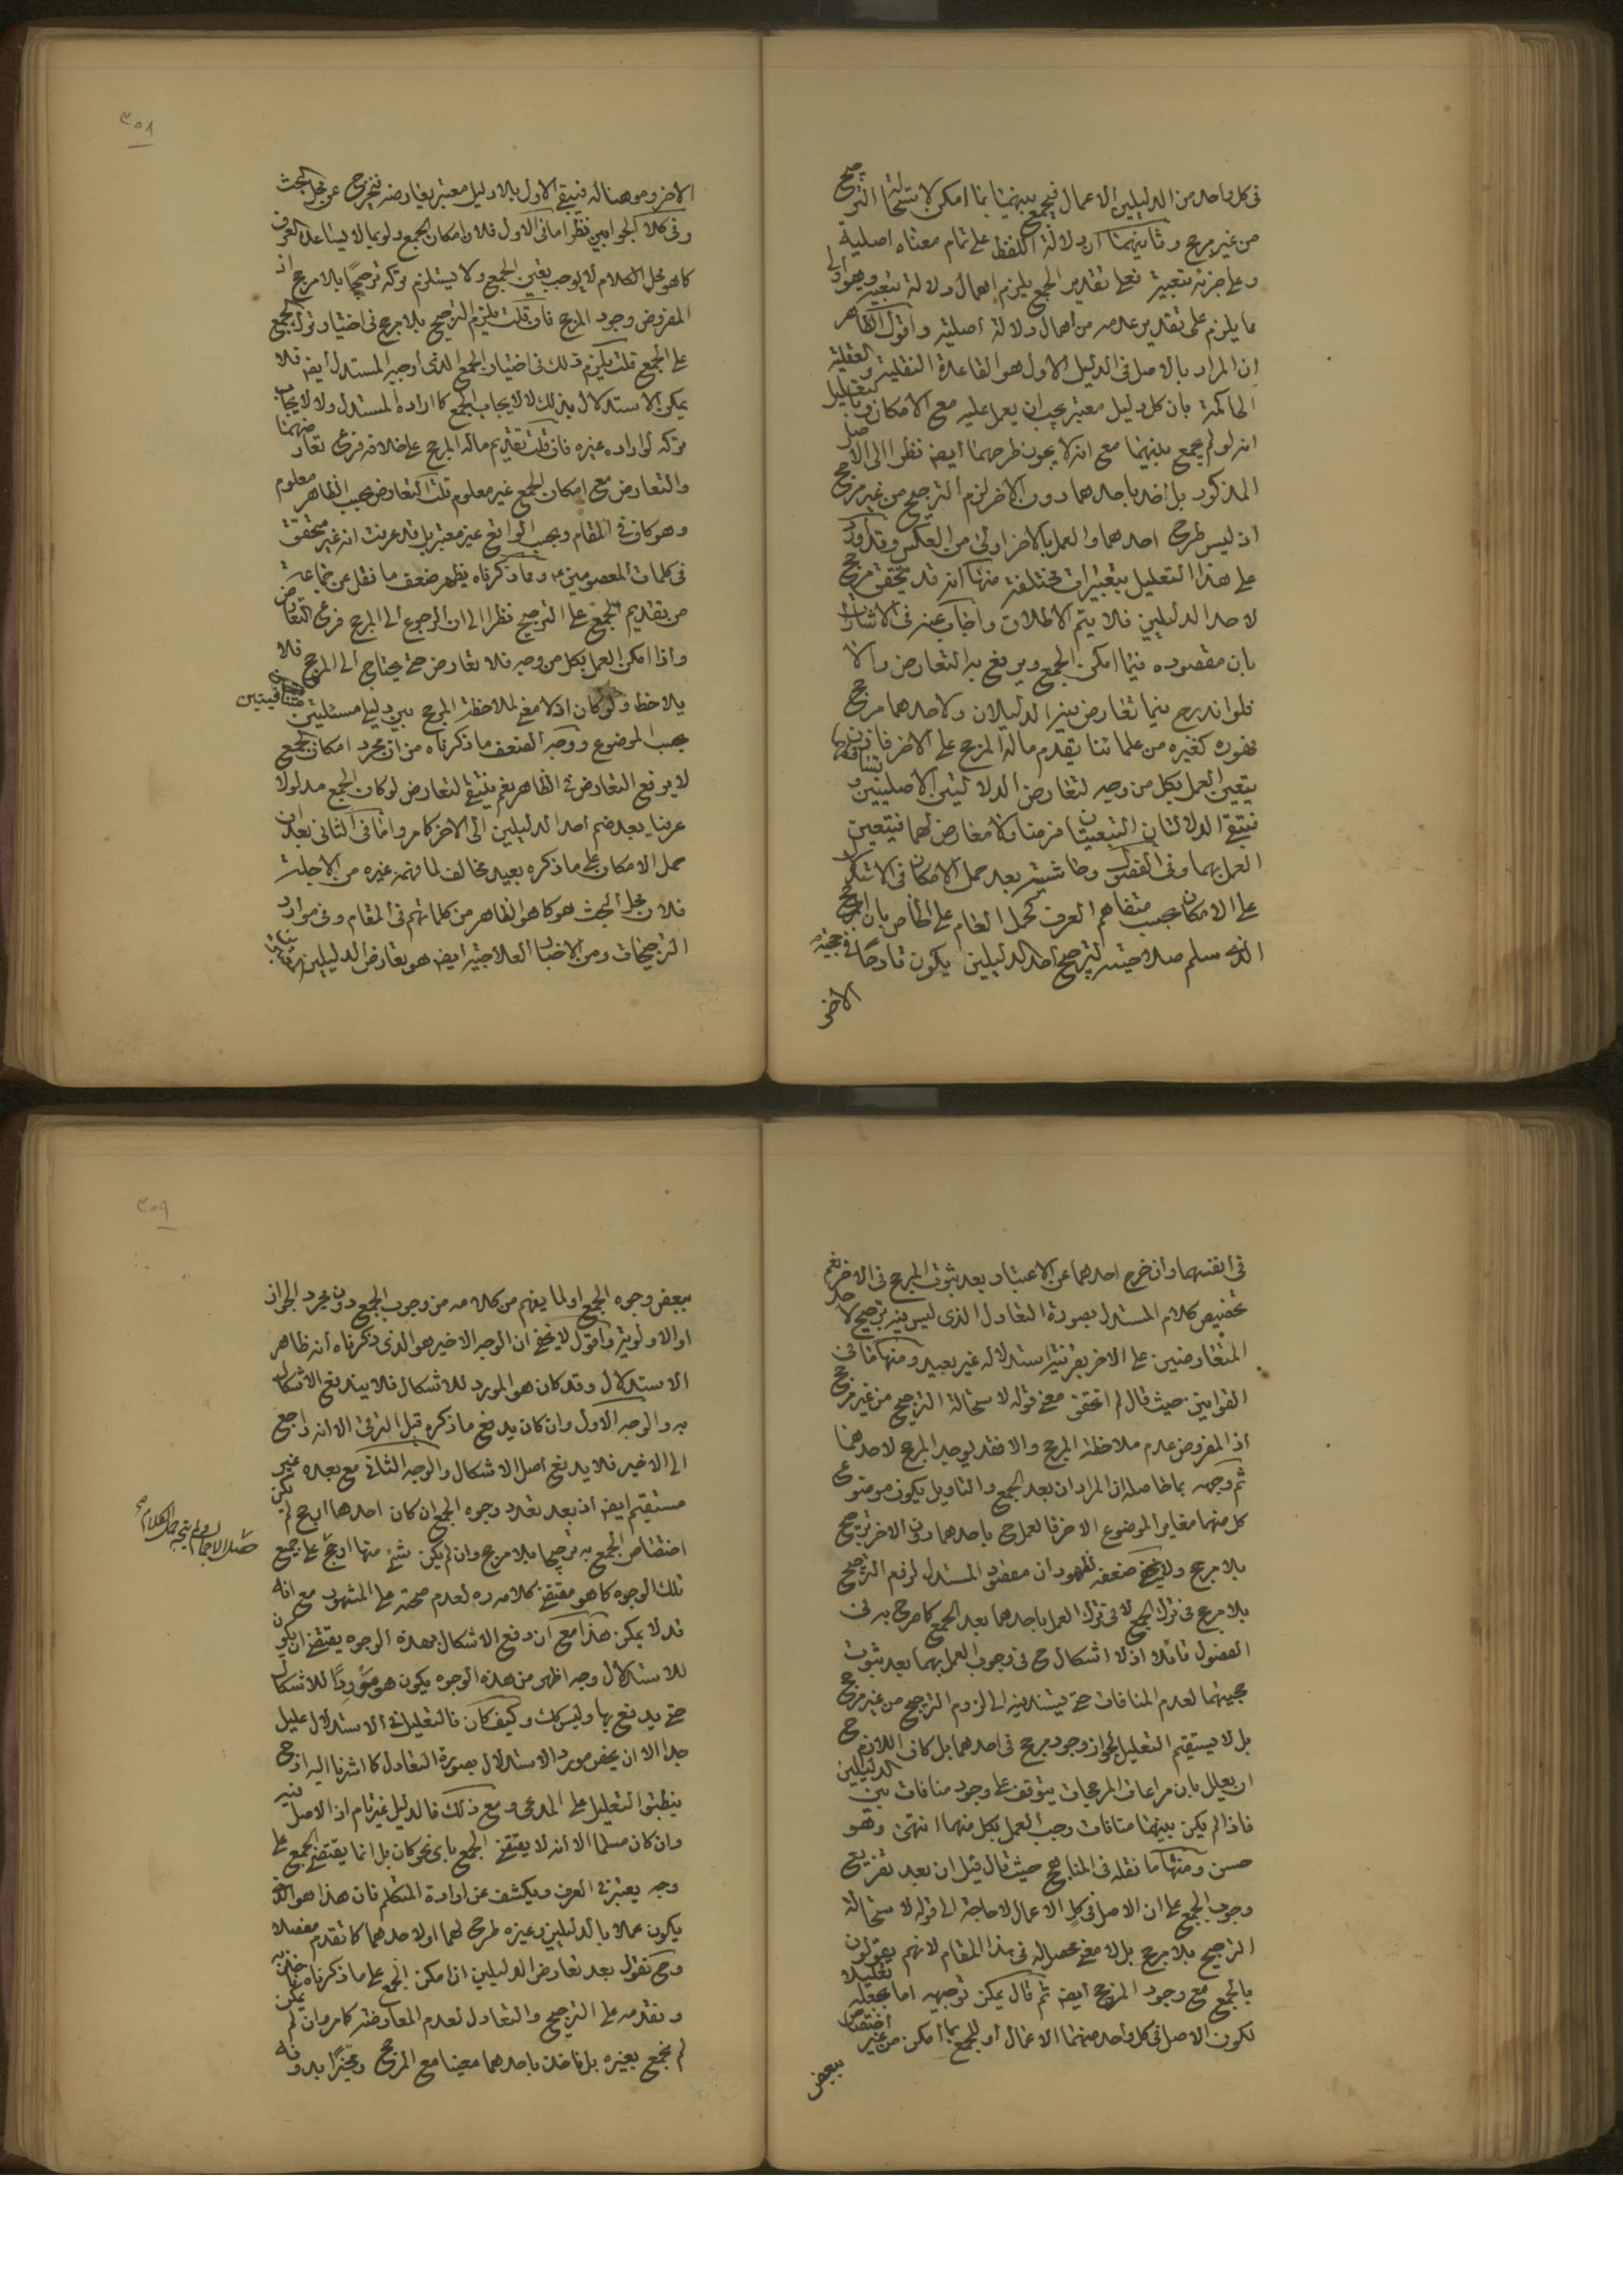 فى كل واحد من الدليلين الاعمال فيجمع بينهما بما امكن لاستحالة الترجيح
من غير مرجح وثانيهما ان دلالة اللفظ على تمام معناه اصلية
وعلى جزئه تبعية فعلى تقدير الجمع يلزم اهمال دلالة تبعية وهو اولى
مما يلزم على تقدير عدمه من اهمال دلالة اصلية واقول الظاهر
ان المراد بالاصل فى الدليل الاول هو القاعدة النقلية والعقلية
الحاكمة بان كل دليل معتبر يجب ان يعمل عليه مع الامكان وبالتعليل
انه لو لم يجمع بينهما مع انه لا يجوز طرحهما أيضا نظرا الى الاصل
المذكور بل اخذ باحدهما دون الاخر لزم الترجيح من غير مرجح
اذ ليس طرح احدهما والعمل بالاخر اولى من العكس وقد اورد
على هذا التعليل بتعبيرات مختلفة منها انه قد يتحقق مرجح
لاحد الدليلين فلا يتم الاطلاق واجاب عنه فى الاشارات
بان مقصوده فيما امكن الجمع ويرتفع به التعارض والا
فلو اندرج فيما تعارض فيه الدليلان ولاحدهما مرجح
فهوره كغيره من علمائنا يقدم ماله المرجح على الاخر فان
يتعين العمل بكل من وجه لتعارض الدلالتين الاصليتين وتساقطهما
فتبقى الدلالتان التبعيتان فرضا ولا معارض لهما فيتعين
العمل بهما وفى الفصول وحاشيته بعد حمل الامكان فى الاشكال
على الامكان بحسب متفاهم العرف كحمل العام على الخاص بان المرجح
الذى سلم صلاحيته لترجيح احد الدليلين يكون قادحا فى حجية
الاخر
٣٥٨
الاخر وموهنا له فيبقى الاول بلا دليل معتبر يعارضه فيخرج عن محل البحث
وفى كلا الجوابين نظر اما فى الاول فلان امكان الجمع ولو بما لا يساعده العرف
كما هو محل الكلام لا يوجب تعين الجمع ولا يستلزم تركه ترجيحًا بلا مرجح اذ
المفروض وجود المرجح فان قلت يلزم الترجيح بلا مرجح فى اختيار ترك الجمع
على الجمع قلت يلزم ذلك فى اختيار الجمع الذى أوجبه المستدل أيضا فلا
يمكن الاستدلال بذلك لا لايجاب الجمع كما اراده المستدل ولا لايجاب
تركه لو اراده غيره فان قلت تقديم ماله المرجح على خلافه فرع تعارضهما
والتعارض مع امكان الجمع غير معلوم قلت التعارض بحسب الظاهر معلوم
وهو كاف فى المقام وبحسب الواقع غير معتبر بل قد عرفت انه غير متحقق
فى كلمات المعصومين ع ومما ذكرناه يظهر ضعف ما نقل عن جماعة
من تقديم الجمع على الترجيح نظرا الى ان الرجوع الى المرجح فرع التعارض
واذا امكن العمل بكل من وجه فلا تعارض حتى يحتاج الى المرجح فلا
يلاحظ ولو كان اذ لا معنى لملاحظة المرجح بين دليلى مسئلتين متنافيتين
بحسب الموضوع ووجه الضعف ما ذكرناه من ان مجرد امكان الجمع
لا يرفع التعارض فى الظاهر نعم ينتفى التعارض لو كان الجمع مدلولا
عرفيا بعد ضم احد الدليلين الى الاخر كما مر واما فى الثانى بعد ان
حمل الامكان على ما ذكره بعيد مخالف لما فهمه غيره من الاجلة
فلان محل البحث هو كما هو الظاهر من كلماتهم فى المقام وفى موارد
الترجيحات ومن الاخبار العلاجية أيضا هو تعارض الدليلين
فى أنفسهما وان خرج احدهما عن الاعتبار بعد ثبوت المرجح فى الاخر نعم
تخصيص كلام المستدل بصورة التعادل الذى ليس فيه ترجيح لاحد
المتعارضين على الاخر بقرينة استدلاله غير بعيد ومنها ما فى
القوانين حيث قال لم اتحقق معنى قوله لاستحالة الترجيح من غير مرجح
اذ المفروض عدم ملاحظة المرجح والا فقد يوجد المرجح لاحدهما
ثم وجهه بما حاصله ان المراد ان بعد الجمع والتاويل يكون موضوع
كل منهما مغايرا لموضوع الاخر فالعمل ح باحدهما دون الاخر ترجيح
بلا مرجح ولا يخفى ضعفه لظهور ان مقصود المستدل لزوم الترجيح
بلا مرجح فى ترك الجمع لا فى ترك العمل باحدهما بعد الجمع كما صرح به فى
الفصول قائلا اذ لا اشكال ح فى وجوب العمل بهما بعد ثبوت
حجيتهما لعدم المنافات حتى يستند فيه الى لزوم الترجيح من غير مرجح
بل لا يستقيم التعليل لجواز وجود مرجح فى احدهما بل كان اللازم ح
ان يعلل بان مراعات المرجحات يتوقف على وجود منافات بين الدليلين
فاذا لم يكن بينهما منافات وجب العمل بكل منهما انتهى وهو
حسن ومنها ما نقله فى المناهج حيث قال قيل ان بعد تفريع
وجوب الجمع على ان الاصل فى كل الاعمال لا حاجة الى قوله لاستحالة
الترجيح بلا مرجح بل لا معنى محصل له فى هذا المقام لانهم يقولون
بالجمع مع وجود المرجح أيضا ثم قال يمكن توجيهه اما بجعله تعليلا
لكون الاصل فى كل واحد منهما الاعمال أو للجمع بما أمكن من غير اختصاص
ببعض
٣٥٩
ببعض وجوه الجمع اولما يفهم من كلامه من وجوب الجمع دون مجرد الجواز
او الاولوية واقول لا يخفى ان الوجه الاخير هو الذى ذكرناه انه ظاهر
الاستدلال وقد كان هو المورد للاشكال فلا يندفع الاشكال
به والوجه الاول وان كان يدفع ما ذكره قبل الترقى الا انه راجع
الى الاخير فلا يدفع اصل الاشكال والوجه الثانى مع بعده غير
مستقيم ايضا اذ بعد تعدد وجوه الجمع ان كان احدها ارجح لم يكن
اختصاص الجمع به ترجيحا بلا مرجح وان لم يكن شئ منها ارجح على جميع
تلك الوجوه كما هو مقتضى كلامه ره لعدم صحته على المشهور مع انه
قد لا يمكن هذا مع ان دفع الاشكال بهذه الوجوه يقتضى ان يكون
للاستدلال وجه اظهر من هذه الوجوه يكون هو موردًا للاشكال
حتى يدفع بها وليس كك وكيف كان فالتعليل فى الاستدلال عليل
جدا الا ان يخص مورد الاستدلال بصورة التعادل كما اشرنا اليه اذ ح
ينطبق التعليل على المدعى ومع ذلك فالدليل غير تام اذ الاصل فيه
وان كان مسلما الا انه لا يقتضى الجمع باى نحو كان بل انما يقتضى الجمع على
وجه يعتبر فى العرف ويكشف عن ارادة المتكلم فان هذا هو الذى
يكون عملا بالدليلين وغيره طرح لهما او لاحدهما كما تقدم مفصلا
وح نقول بعد تعارض الدليلين ان امكن الجمع على ما ذكرناه
ونقدمه على الترجيح والتعادل لعدم المعارضة كما مر وان لم يمكن
لم نجمع بغيره بل ناخذ باحدهما معينا مع المرجح ومخيرًا بدونه